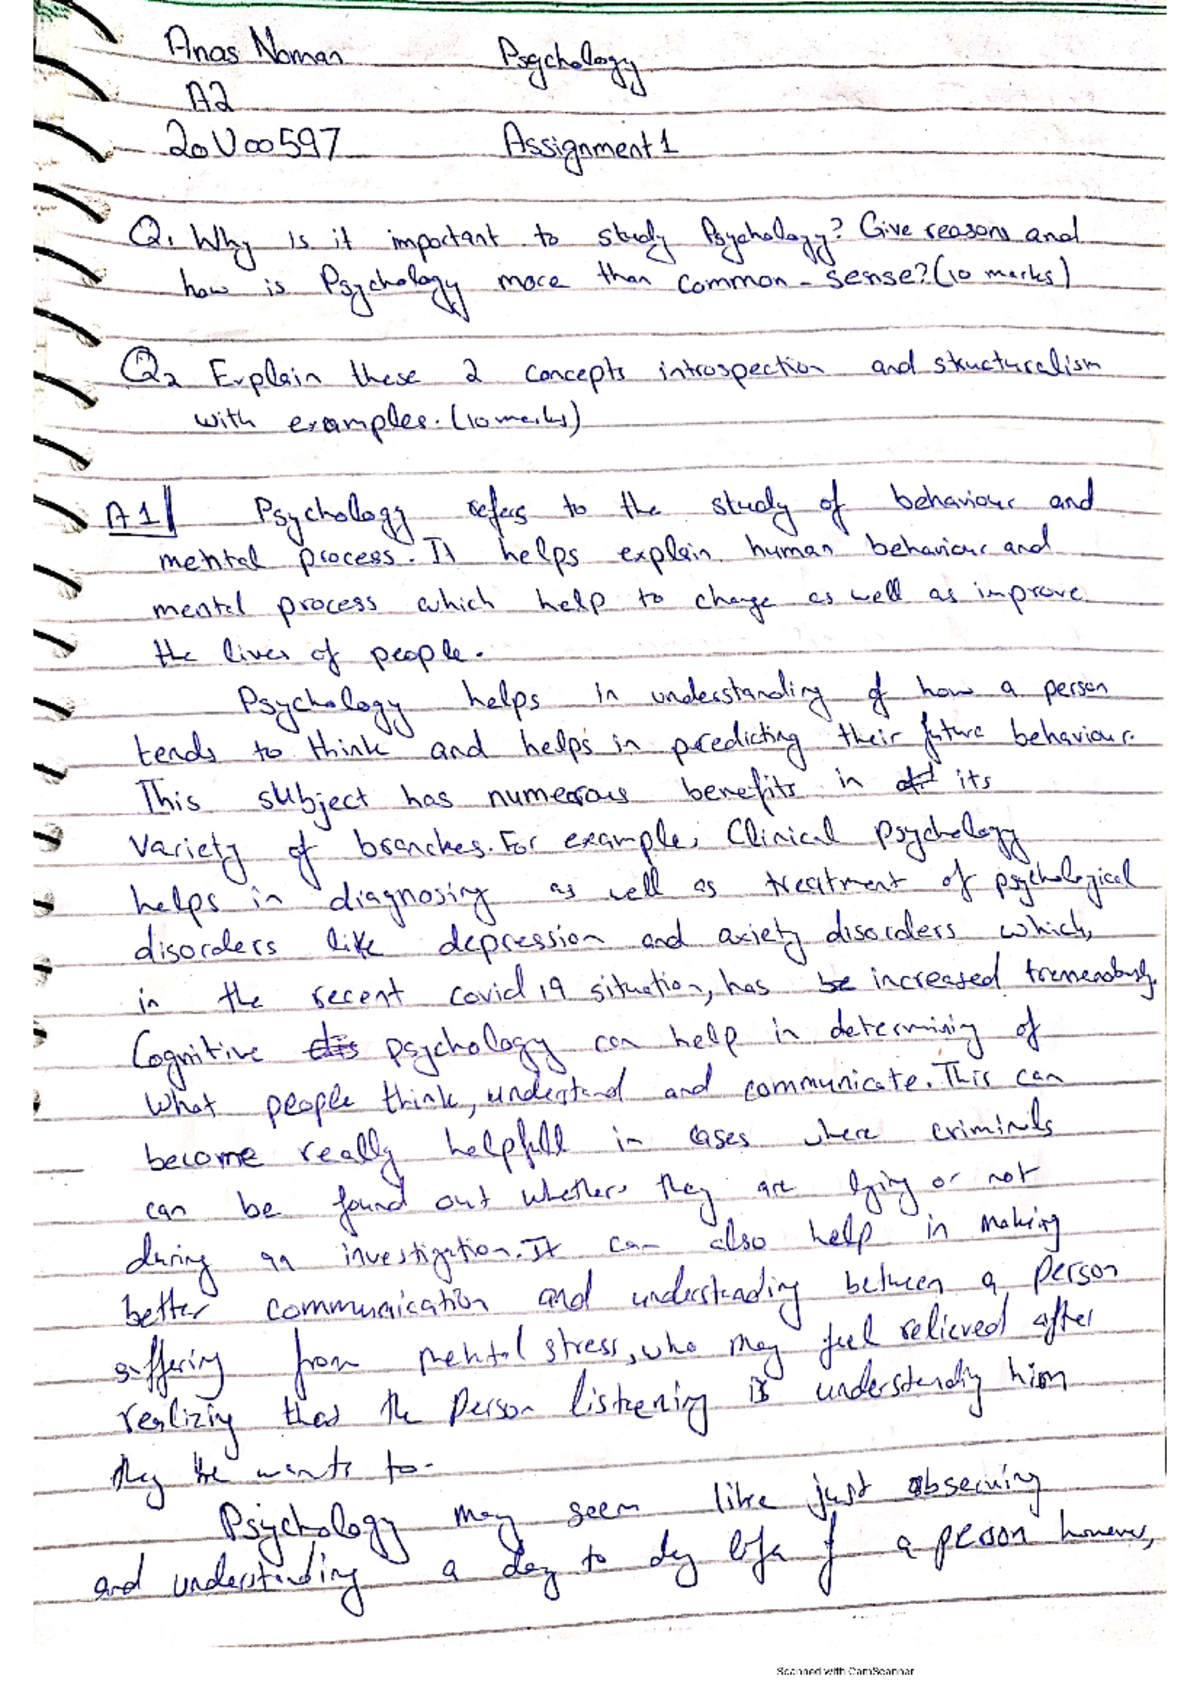 Anas Noman Psychology
A2
20U00597 Assignment 1
Q1 Why is it important to study Psychology? Give reasons and
how is Psychology more than common-sense? (10 marks)
Q2 Explain these 2 concepts introspection and structuralism
with examples. (10 marks)
A1 Psychology refers to the study of behaviour and
mental process. It helps explain human behaviour and
mental process which help to change as well as improve
the lives of people.
Psychology helps in understanding of how a person
tends to think and helps in predicting their future behaviour.
This subject has numerous benefits in its
variety of branches. For example, Clinical psychology
helps in diagnosing as well as treatment of psychological
disorders like depression and axiety disorders which,
in the recent covid 19 situation, has be increased tremendously.
Cognitive psychology can help in determinig of
what people think, understand and communicate. This can
become really helpfull in cases where criminals
can be found out whether they are lying or not
during an investigation. It can also help in making
better communication and understanding between a person
suffering from mental stress, who may feel relieved after
realizig that the person listening is understandig him
they he wants to.
Psychology may seem like just observing
and understanding a day to day life of a person however,
Scanned with CamScanner